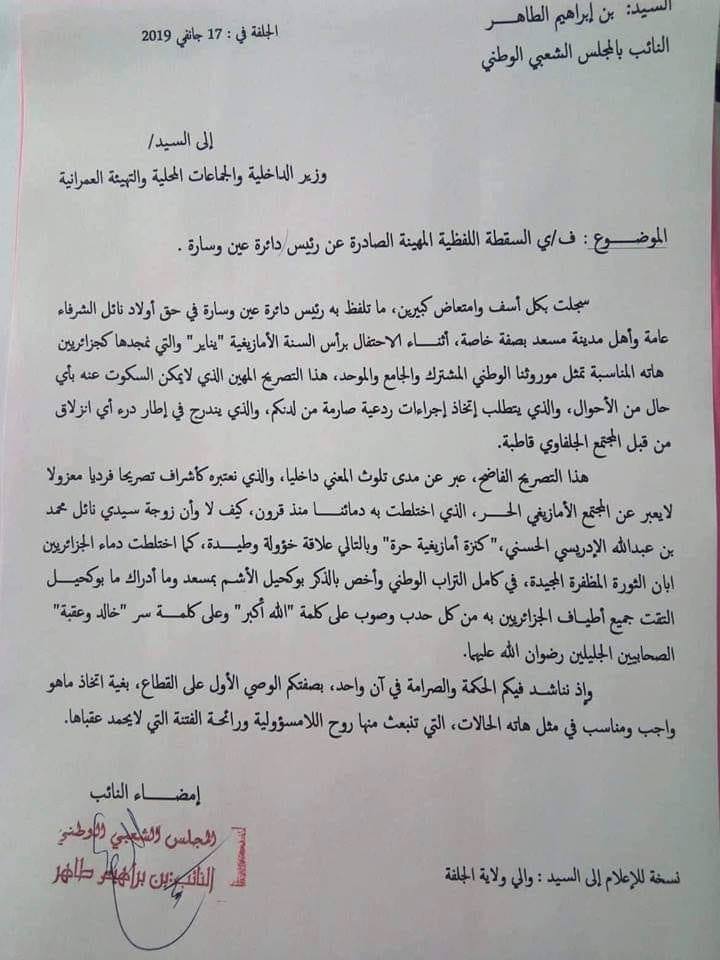 السيد: بن إبراهيم الطاهر
النائب بالمجلس الشعبي الوطني
الجلفة في : 17 جانفي 2019
إلى السيد/
وزير الداخلية والجماعات المحلية والتهيئة العمرانية
الموضوع : ف/ي السقطة اللفظية المهينة الصادرة عن رئيس دائرة عين وسارة .
سجلت بكل أسف وامتعاض كبيرين، ما تلفظ به رئيس دائرة عين وسارة في حق أولاد نائل الشرفاء
عامة وأهل مدينة مسعد بصفة خاصة، أثناء الاحتفال برأس السنة الأمازيغية "يناير" والتي نمجدها كجزائريين
هاته المناسبة تمثل موروثنا الوطني المشترك والجامع والموحد، هذا التصريح المهين الذي لايمكن السكوت عنه بأي
حال من الأحوال، والذي يتطلب إتخاذ إجراءات ردعية صارمة من لدنكم، والذي يندرج في إطار درء أي انزلاق
من قبل المجتمع الجلفاوي قاطبة.
هذا التصريح الفاضح، عبر عن مدى تلوث المعني داخليا، والذي نعتبره كأشراف تصريحا فرديا معزولا
لايعبر عن المجتمع الأمازيغي الحر، الذي اختلطت به دمائنا منذ قرون، كيف لا وأن زوجة سيدي نائل محمد
بن عبدالله الإدريسي الحسني،"كنزة أمازيغية حرة" وبالتالي علاقة خؤولة وطيدة، كما اختلطت دماء الجزائريين
ابان الثورة المظفرة المجيدة، في كامل التراب الوطني وأخص بالذكر بوكحيل الأشم بمسعد وما أدراك ما بوكحيل
التقت جميع أطياف الجزائريين به من كل حدب وصوب على كلمة "الله أكبر" وعلى كلمة سر "خالد وعقبة"
الصحابيين الجليلين رضوان الله عليهما.
وإذ نناشد فيكم الحكمة والصرامة في آن واحد، بصفتكم الوصي الأول على القطاع، بغية اتخاذ ماهو
واجب ومناسب في مثل هاته الحالات، التي تنبعث منها روح اللامسؤولية ورائحة الفتنة التي لايحمد عقباها.
إمضاء النائب
المجلس الشعبي الوطني
النائب: بن براهيم طاهر
نسخة للإعلام إلى السيد : والي ولاية الجلفة